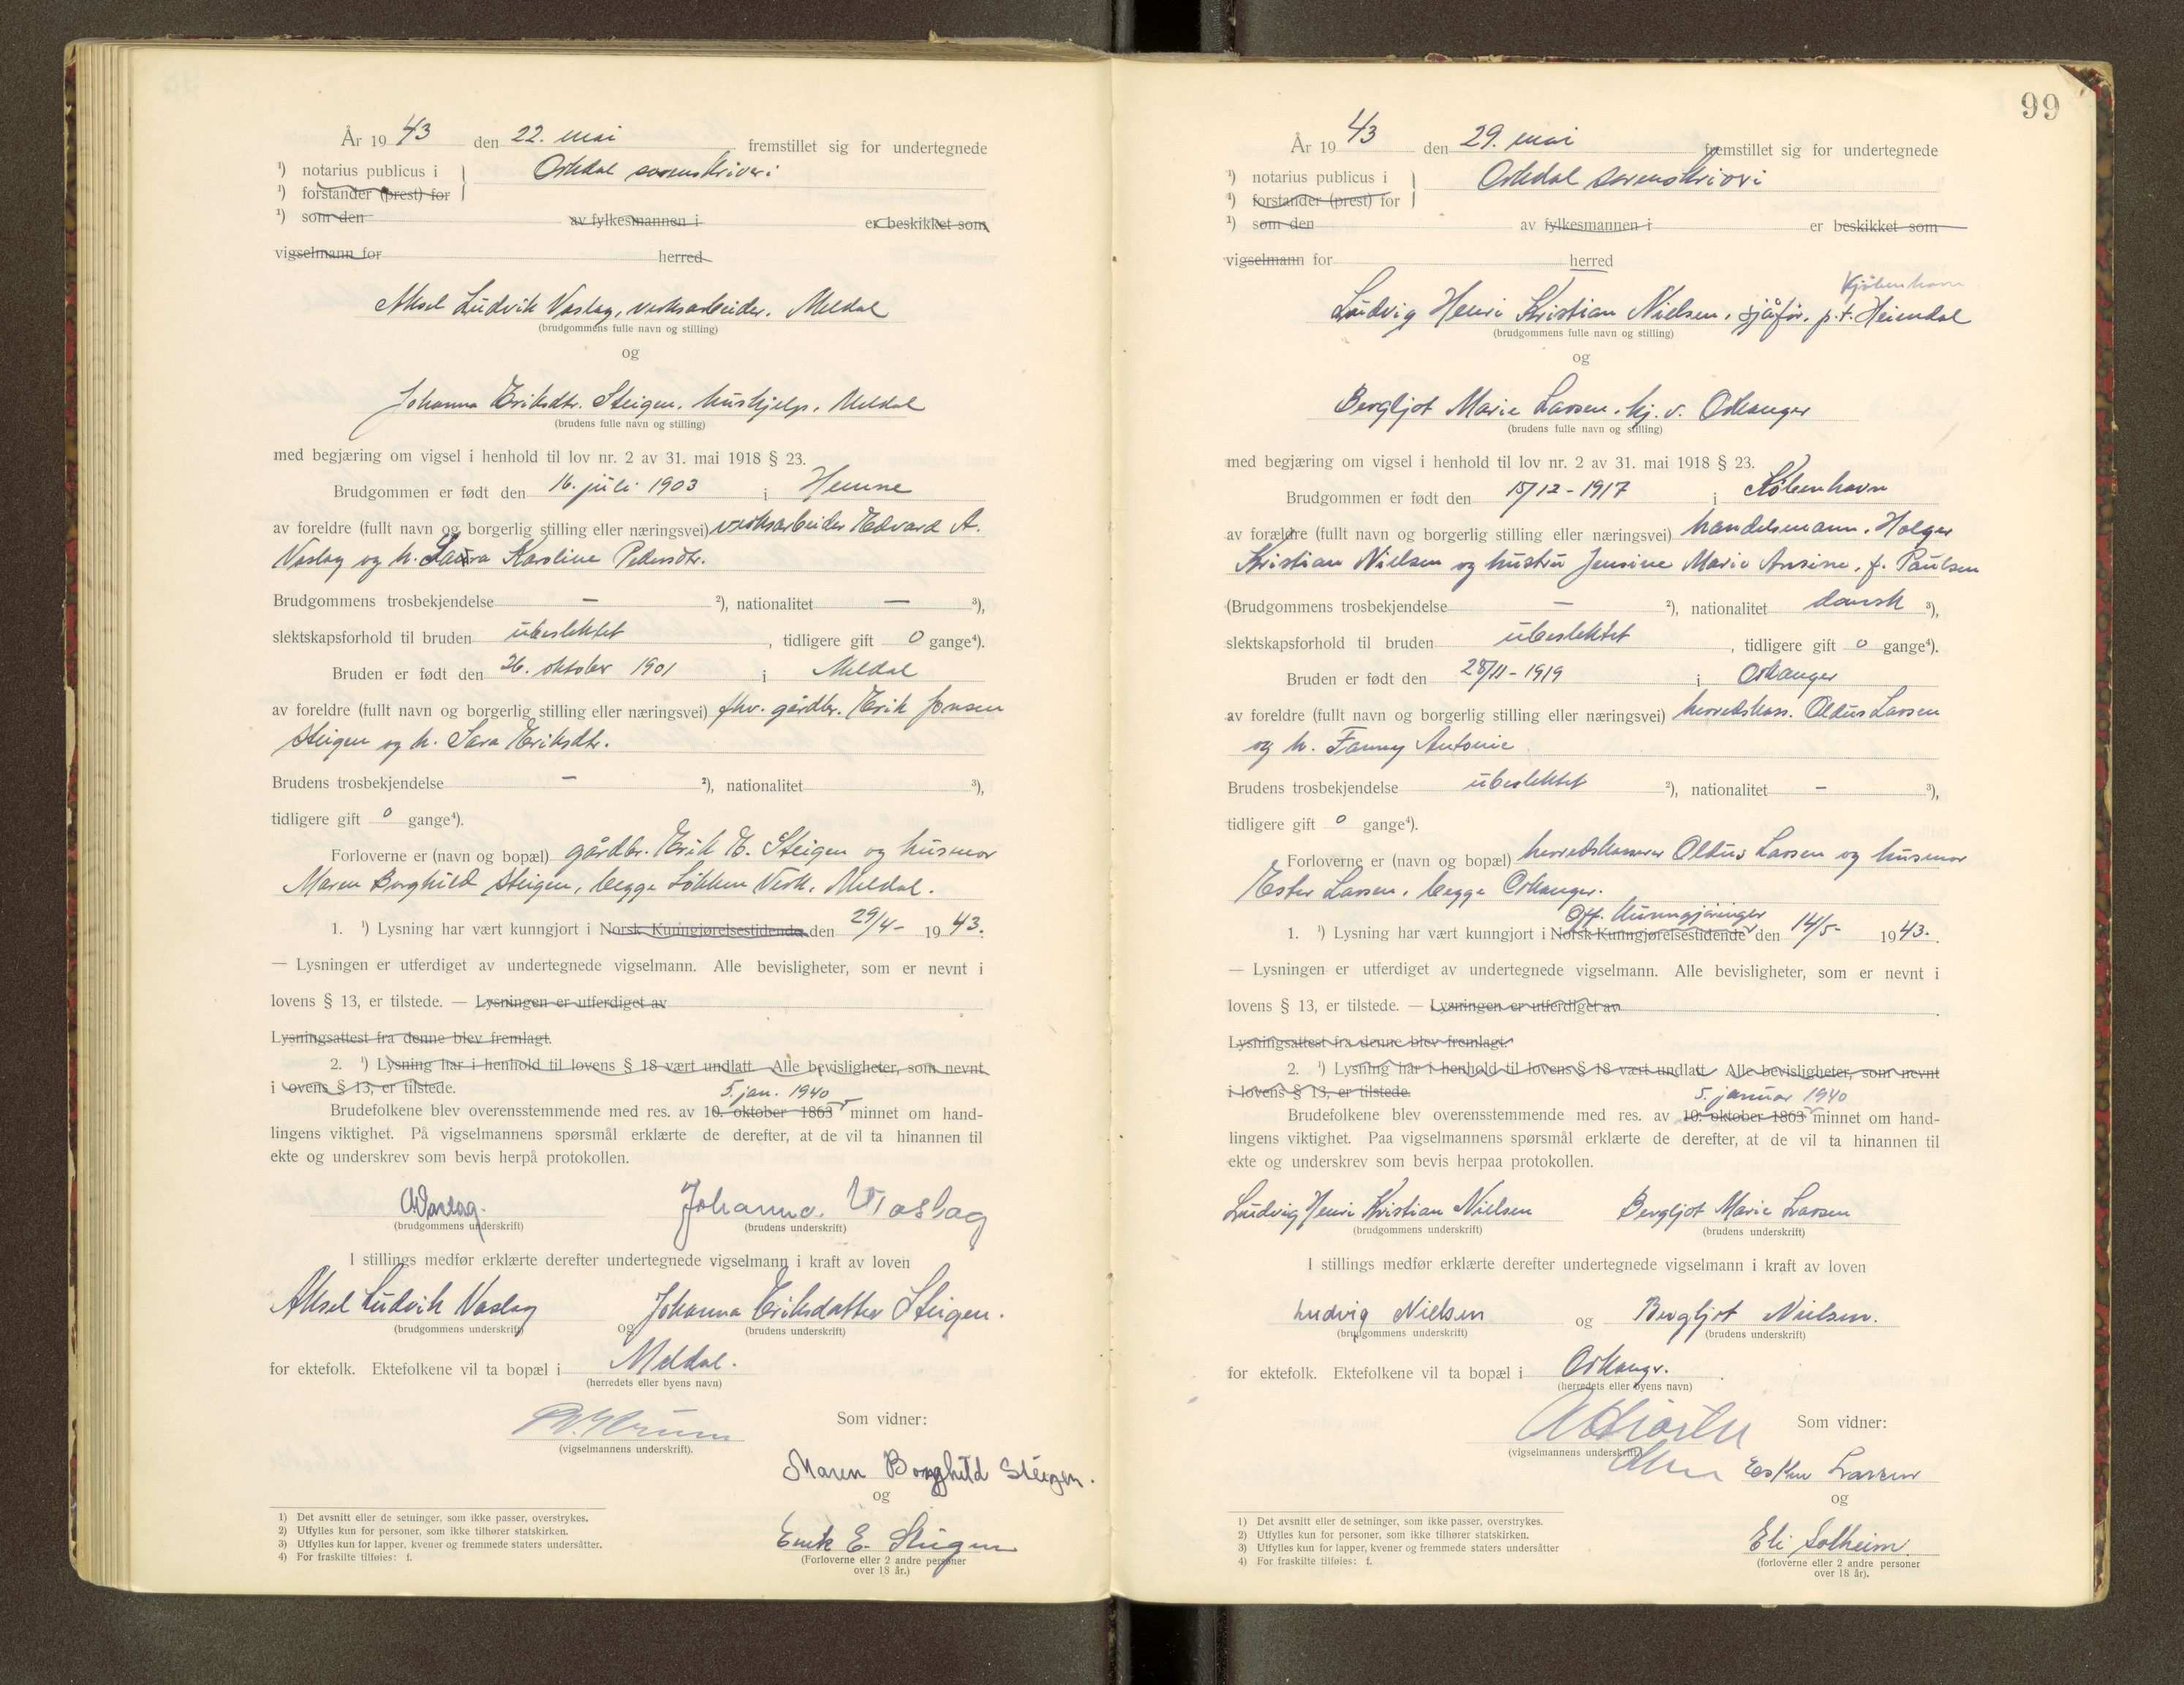 År 19 43 den 22. mai fremstillet sig for undertegnede
¹) notarius publicus i Orkdal sorenskriveri
¹) forstander (prest) for
¹) som den av fylkesmannen i er beskikket som
vigselmann for herred
Aksel Ludvik Vaslag, verksarbeider. Meldal
(brudgommens fulle navn og stilling)
og
Johanna Eriksdtr. Steigen. hushjelp. Meldal
(brudens fulle navn og stilling)
med begjæring om vigsel i henhold til lov nr. 2 av 31. mai 1918 § 23.
Brudgommen er født den 16. juli 1903 i Hemne
av foreldre (fullt navn og borgerlig stilling eller næringsvei) verksarbeider Edvard A.
Vaslag og h. Laura Karoline Pedersdtr.
Brudgommens trosbekjendelse — ²), nationalitet — ³),
slektskapsforhold til bruden ubeslektet, tidligere gift 0 gange⁴).
Bruden er født den 26. oktober 1901 i Meldal
av foreldre (fullt navn og borgerlig stilling eller næringsvei) fhv. gårdbr. Erik Jonsen
Steigen og h. Sara Eriksdtr.
Brudens trosbekjendelse — ²), nationalitet ³),
tidligere gift 0 gange⁴).
Forloverne er (navn og bopæl) gårdbr. Erik E. Steigen og husmor
Maren Borghild Steigen, begge Løkken Verk, Meldal.
1. ¹) Lysning har vært kunngjort i Norsk Kunngjørelsestidende den 29/4- 19 43.
— Lysningen er utferdiget av undertegnede vigselmann. Alle bevisligheter, som er nevnt i
lovens § 13, er tilstede. — Lysningen er utferdiget av
Lysningsattest fra denne blev fremlagt.
2. ¹) Lysning har i henhold til lovens § 18 vært undlatt. Alle bevisligheter, som nevnt
i lovens § 13, er tilstede.
5. jan. 1940
Brudefolkene blev overensstemmende med res. av 10. oktober 1863 minnet om hand-
lingens viktighet. På vigselmannens spørsmål erklærte de derefter, at de vil ta hinannen til
ekte og underskrev som bevis herpå protokollen.
AVaslag. Johanna Vaslag
(brudgommens underskrift) (brudens underskrift)
I stillings medfør erklærte derefter undertegnede vigselmann i kraft av loven
Aksel Ludvik Vaslag og Johanna Eriksdatter Steigen.
(brudgommens underskrift) (brudens underskrift)
for ektefolk. Ektefolkene vil ta bopæl i Meldal.
(herredets eller byens navn)
Som vidner:
(vigselmannens underskrift).
Maren Borghild Steigen.
og
Erik E. Steigen
(Forloverne eller 2 andre personer
over 18 år.)
1) Det avsnitt eller de setninger, som ikke passer, overstrykes.
2) Utfylles kun for personer, som ikke tilhører statskirken.
3) Utfylles kun for lapper, kvener og fremmede staters undersåtter.
4) For fraskilte tilføies: f.
99
År 19 43 den 29. mai fremstillet sig for undertegnede
¹) notarius publicus i Orkdal sorenskriveri
¹) forstander (prest) for
¹) som den av fylkesmannen i er beskikket som
vigselmann for herred
Kjöbenhavn
Ludvig Henri Kristian Nielsen, sjåfør. p.t. Heimdal
(brudgommens fulle navn og stilling)
og
Bergljot Marie Larsen. hj. v. Orkanger
(brudens fulle navn og stilling)
med begjæring om vigsel i henhold til lov nr. 2 av 31. mai 1918 § 23.
Brudgommen er født den 15/12 - 1917 i København
av forældre (fullt navn og borgerlig stilling eller næringsvei) handelsmann. Holger
Kristian Nielsen og hustru Jensine Marie Ansine, f. Paulsen
(Brudgommens trosbekjendelse — ²), nationalitet dansk ³),
slektskapsforhold til bruden ubeslektet, tidligere gift 0 gange⁴).
Bruden er født den 28/11 - 1919 i Orkanger
av foreldre (fullt navn og borgerlig stilling eller næringsvei) herredskass. Oldus Larsen
og h. Fanny Antonie
Brudens trosbekjendelse ubeslektet ²), nationalitet — ³),
tidligere gift 0 gange⁴).
Forloverne er (navn og bopæl) herredskasserer Oldus Larsen og husmor
Ester Larsen. begge Orkanger.
Off. Kunngjøringer
1. ¹) Lysning har vært kunngjort i Norsk Kunngjørelsestidende den 14/5- 19 43.
— Lysningen er utferdiget av undertegnede vigselmann. Alle bevisligheter, som er nevnt i
lovens § 13, er tilstede. — Lysningen er utferdiget av
Lysningsattest fra denne blev fremlagt.
2. ¹) Lysning har i henhold til lovens § 18 vært undlatt Alle bevisligheter, som nevnt
i lovens § 13, er tilstede.
5. januar 1940
Brudefolkene blev overensstemmende med res. av 10. oktober 1863 minnet om hand-
lingens viktighet. Paa vigselmannens spørsmål erklærte de derefter, at de vil ta hinannen til
ekte og underskrev som bevis herpaa protokollen.
Ludvig Henri Kristian Nielsen Bergljot Marie Larsen
(brudgommens underskrift) (brudens underskrift)
I stillings medfør erklærte derefter undertegnede vigselmann i kraft av loven
Ludvig Nielsen og Bergljot Nielsen.
(brudgommens underskrift) (brudens underskrift)
for ektefolk. Ektefolkene vil ta bopæl i Orkangr.
(herredets eller byens navn)
Som vidner:
(vigselmannens underskrift)
Ester Larsen
og
Eli Solheim.
(forloverne eller 2 andre personer
over 18 år).
1) Det avsnitt eller de setninger, som ikke passer, overstrykes.
2) Utfylles kun for personer, som ikke tilhører statskirken.
3) Utfylles kun for lapper, kvener og fremmede staters undersåtter
4) For fraskilte tilføies: f.